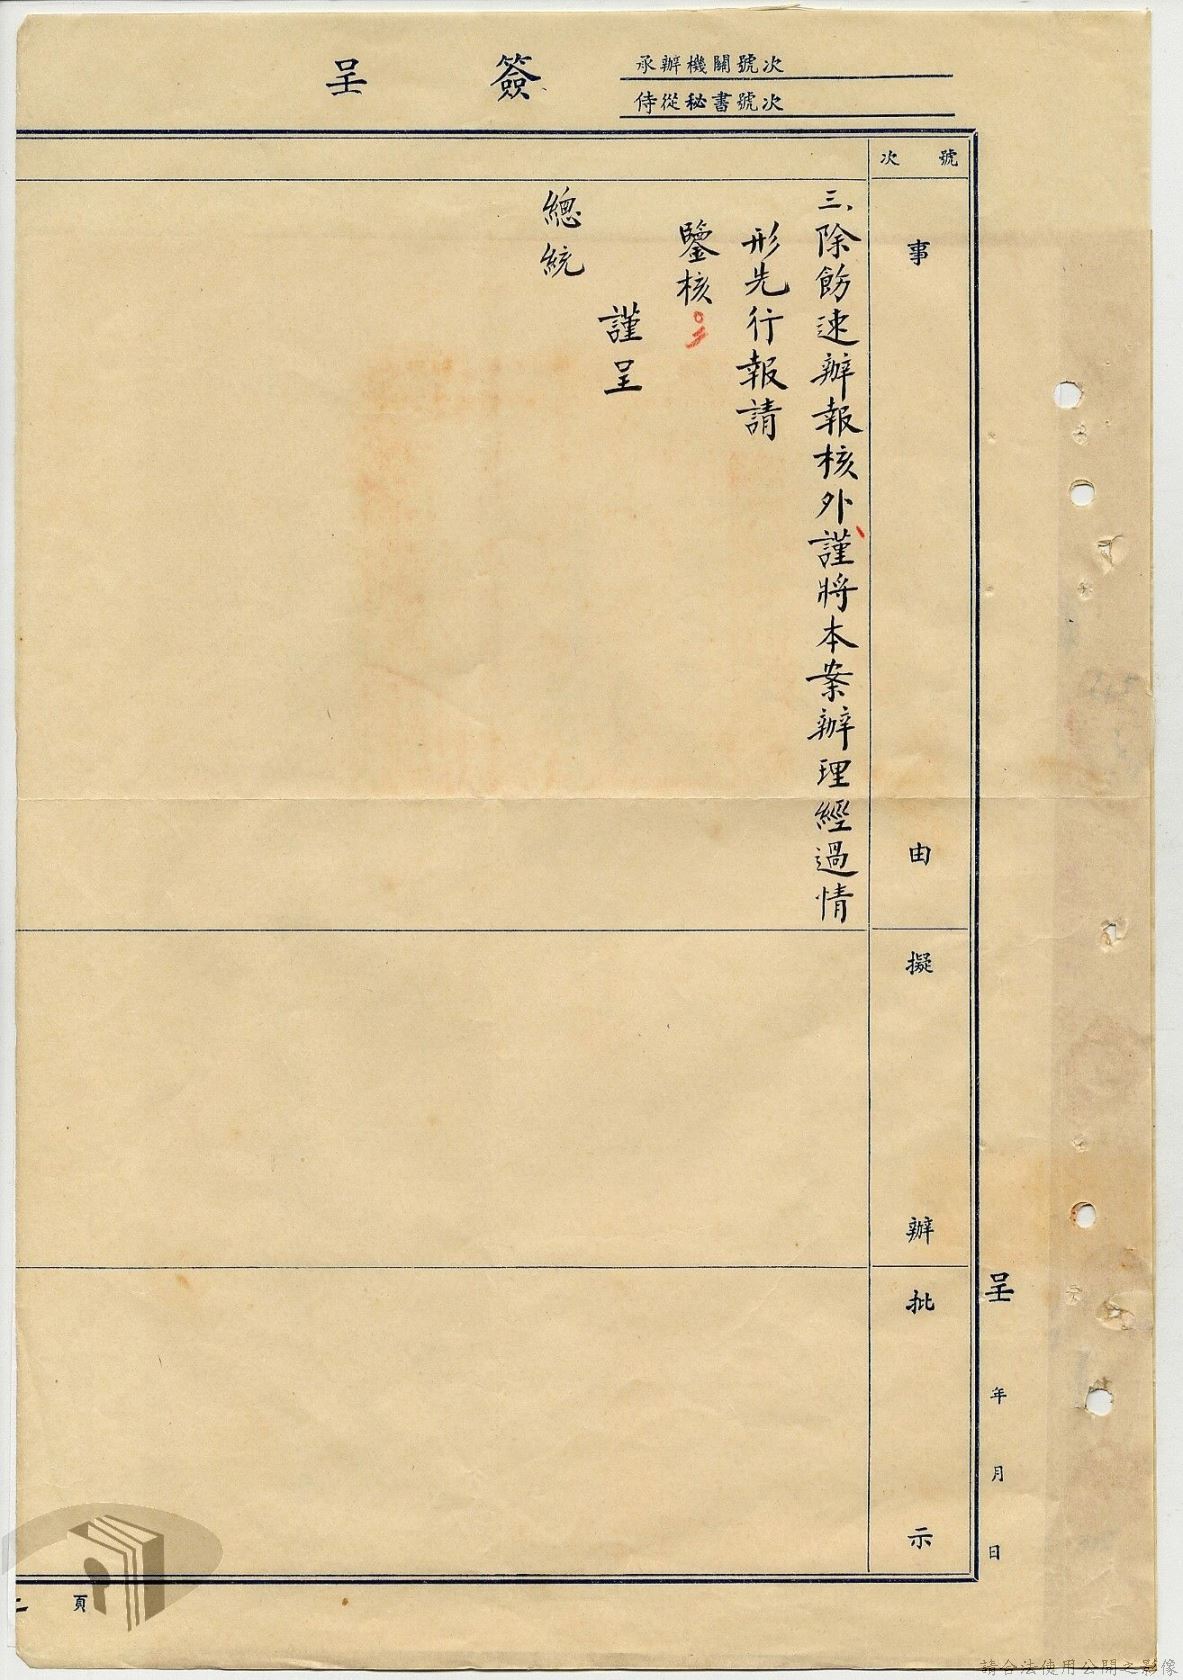 簽呈
承辦機關號次
侍從秘書號次
號次
事由
擬辦
批示
三、除飭速辦報核外謹將本案辦理經過情
形先行報請
鑒核。
謹呈
總統
呈 年 月 日
頁
請合法使用公開之影像